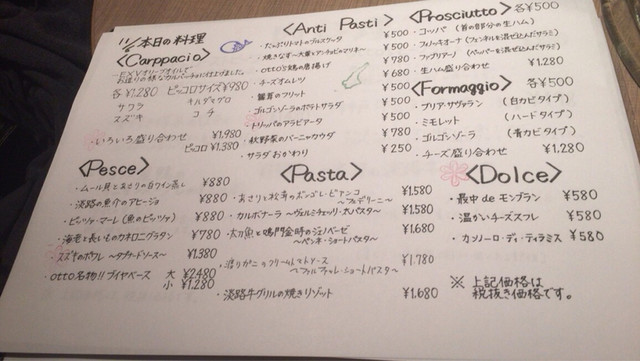 11/6 本日の料理
<Carppacio>
EXVオリーブオイルで
お造りの様なカルパッチョに仕上げました。
各 ¥1,280 ピッコロサイズ ¥980
サワラ キハダマグロ
スズキ コラ
いろいろ盛り合わせ ¥1,980
ピッコロ ¥1,380
<Anti Pasti>
・たっぷりトマトのブルスケッタ ¥500
・焼きなす〜大葉とアンチョビのマリネ〜 ¥500
・ottoｯ鶏の唐揚げ ¥780
・チーズオムレツ ¥680
・鱧茸のフリット ¥500
・ゴルゴンゾーラのポテトサラダ ¥500
・トリッパのアラビアータ ¥500
・秋野菜のバーニャカウダ ¥980
・サラダおかわり ¥250
<Prosciutto> 各¥500
・コッパ (首の部分の生ハム)
・フィノッキオーナ (フェンネルを混ぜ込んだサラミ)
・ファブリアーノ (ペッパーを混ぜ込んだサラミ)
・生ハム盛り合わせ ¥1,280
<Formaggio> 各¥500
・ブリア・サヴァラン (白カビタイプ)
・ミモレット (ハードタイプ)
・ゴルゴンゾーラ (青カビタイプ)
・チーズ盛り合わせ ¥1,280
<Pesce>
・ムール貝とあさりの白ワイン蒸し ¥880
・淡路の魚介のアヒージョ ¥880
・ピッツァ・マーレ (魚のピッツァ) ¥880
・海老と長いものカネロニグラタン ¥780
・スズキのポワレ 〜タプナードソース〜 ¥1,380
・otto名物!! ブイヤベース 大 ¥2,480
小 ¥1,280
<Pasta>
・あさりと秋茸のボンゴレ・ビアンコ
〜フェデリーニ〜 ¥1,580
・カルボナーラ 〜ヴェルミチェッリ・太パスタ〜 ¥1,580
・太刀魚と鳴門金時のジェノベーゼ
〜ペンネ・ショートパスタ〜 ¥1,680
・渡りガニのクリームトマトソース
〜ファルファッレ・ショートパスタ〜 ¥1,780
・淡路牛グリルの焼きリゾット ¥1,680
<Dolce>
・最中 de モンブラン ¥580
・温かいチーズスフレ ¥580
・カッノーロ・ディ・ティラミス ¥580
※ 上記価格は
税抜き価格です。